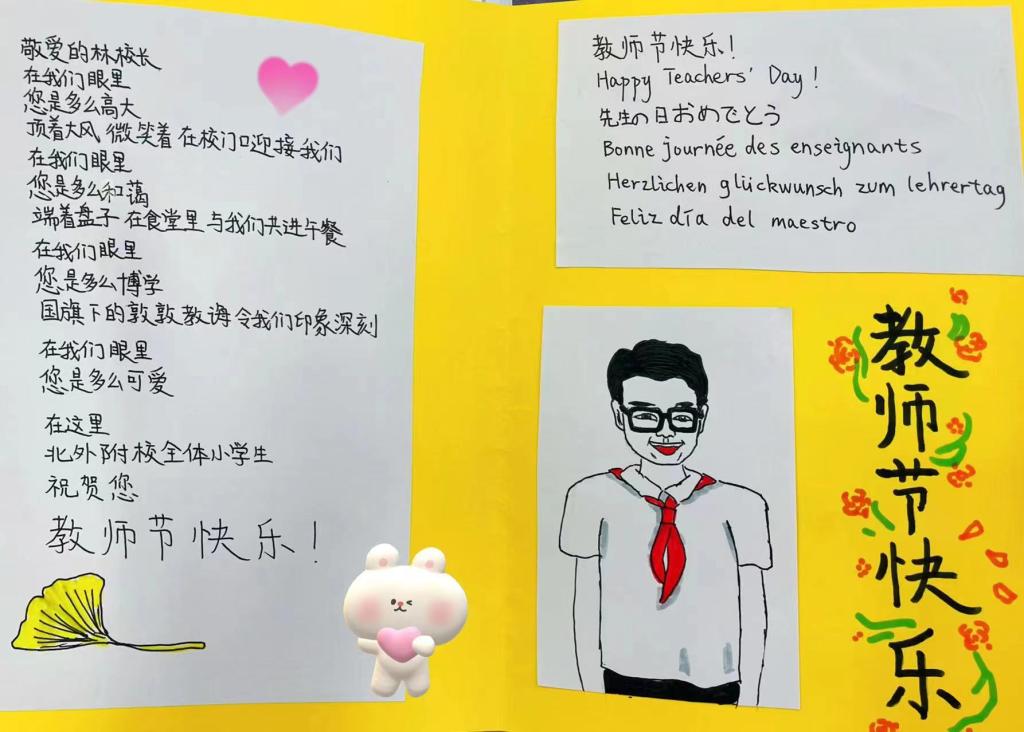 敬爱的林校长
在我们眼里
您是多么高大
顶着大风,微笑着在校门口迎接我们
在我们眼里
您是多么和蔼
端着盘子在食堂里与我们共进午餐
在我们眼里
您是多么博学
国旗下的敦敦教诲令我们印象深刻
在我们眼里
您是多么可爱
在这里
北外附校全体小学生
祝贺您
教师节快乐!
教师节快乐!
Happy Teachers' Day!
先生の日おめでとう
Bonne journée des enseignants
Herzlichen glückwunsch zum lehrertag
Feliz día del maestro
教师节快乐